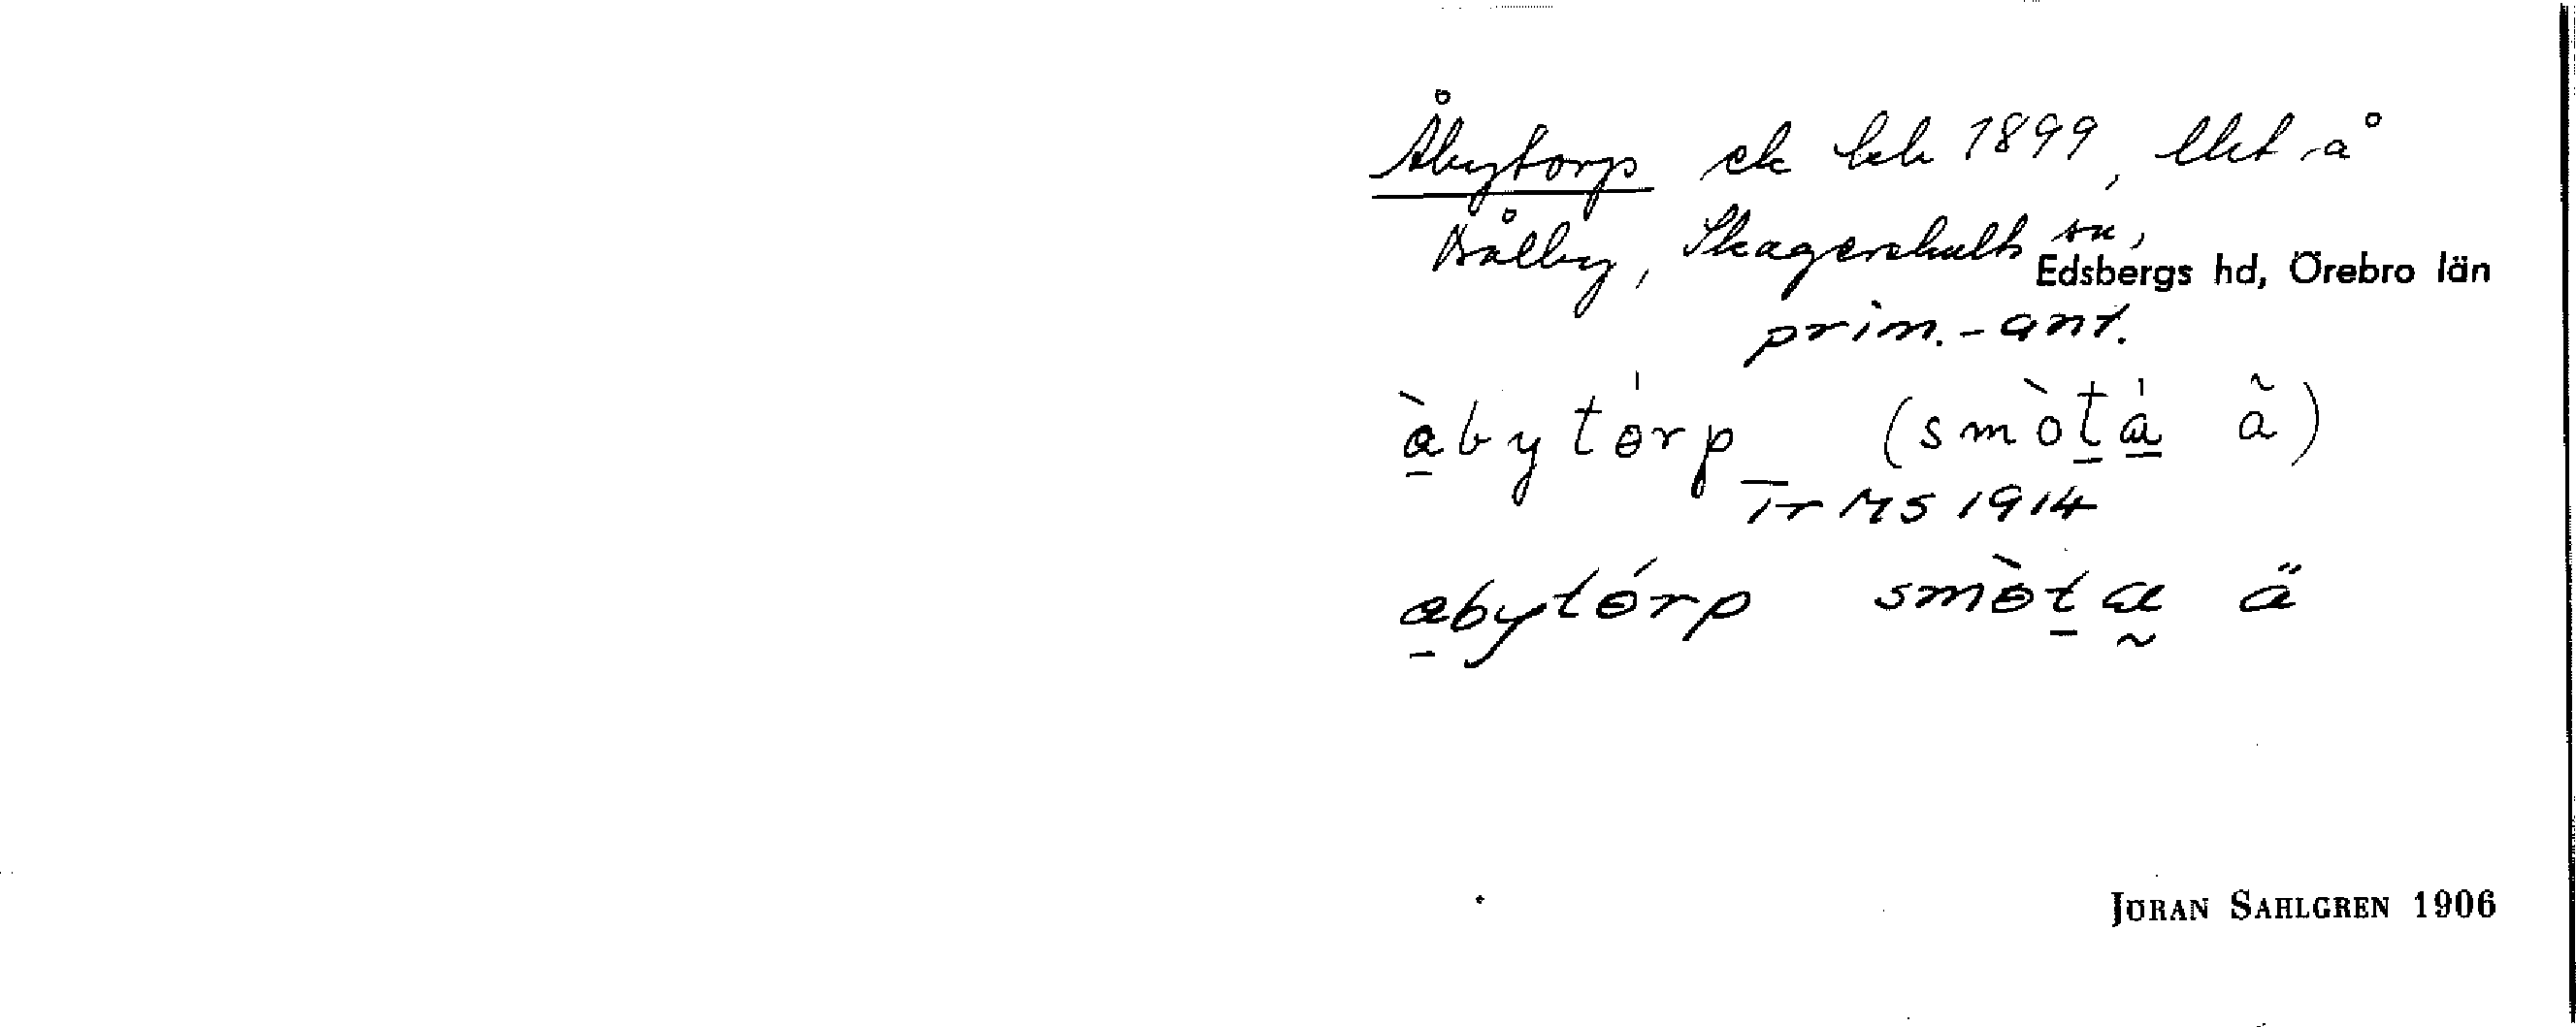 Åbytorp ek beb 1899, lht å
Kålby, Skagershults sn,
Edsbergs hd, Örebro län
prim.-ant.
à̲bytɵ́rp (smòt̲á̲ ã)
Tr MS 1914
a̲bytɵ́rp smɵ̀t̲a̰ ä
JÖRAN SAHLGREN 1906